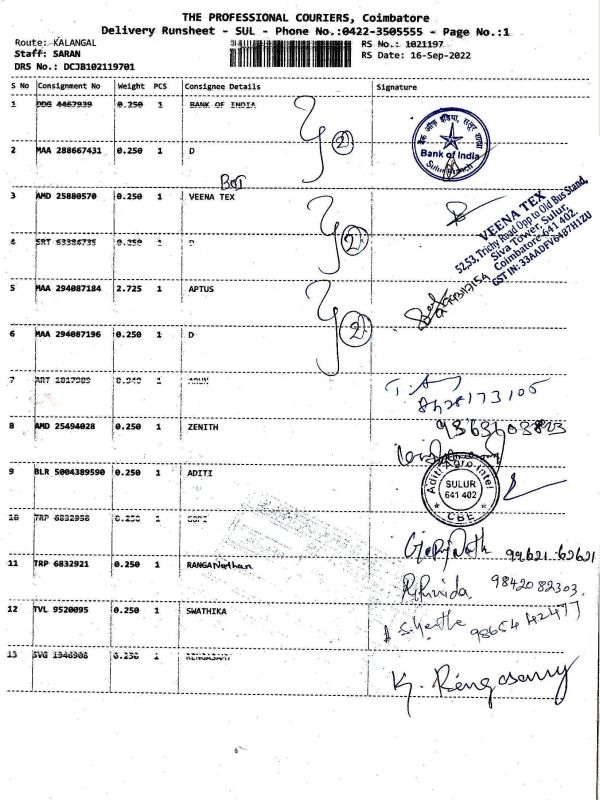 THE PROFESSIONAL COURIERS, Coimbatore
Delivery Runsheet - SUL - Phone No.:0422-3505555 - Page No.:1
Route: KALANGAL
Staff: SARAN
DRS No.: DCJB102119701
RS No.: 1021197
RS Date: 16-Sep-2022
S No Consignment No Weight PCS Consignee Details Signature
1 DDG 4467939 0.250 1 BANK OF INDIA
बैंक ऑफ इंडिया, सुलूर शाखा
Bank of India
Sulur Branch
2 MAA 288667431 0.250 1 D
BOI
3 AMD 25880570 0.250 1 VEENA TEX
VEENA TEX
52,53, Trichy Road Opp to Old Bus Stand,
Siva Tower, Sulur,
Coimbatore-641 402.
GST IN: 33AADFV6487H1ZU
4 SRT 63384735 0.250 1 D
5 MAA 294087184 2.725 1 APTUS
6 MAA 294087196 0.250 1 D
7 1 ARUN
8428173105
8 AMD 25494028 0.250 1 ZENITH
9 BLR 5004389590 0.250 1 ADITI
Aditi Agro-Intel
SULUR
641 402
CBE
10 TRP 6832958 0.250 1 GOPI
Gopinath 99621-62621
11 TRP 6832921 0.250 1 RANGA Nathan
9842082303.
12 TVL 9520095 0.250 1 SWATHIKA
98654 42477
13 SVG 1946906 0.250 1 RENGASAMY
K. Rengasamy